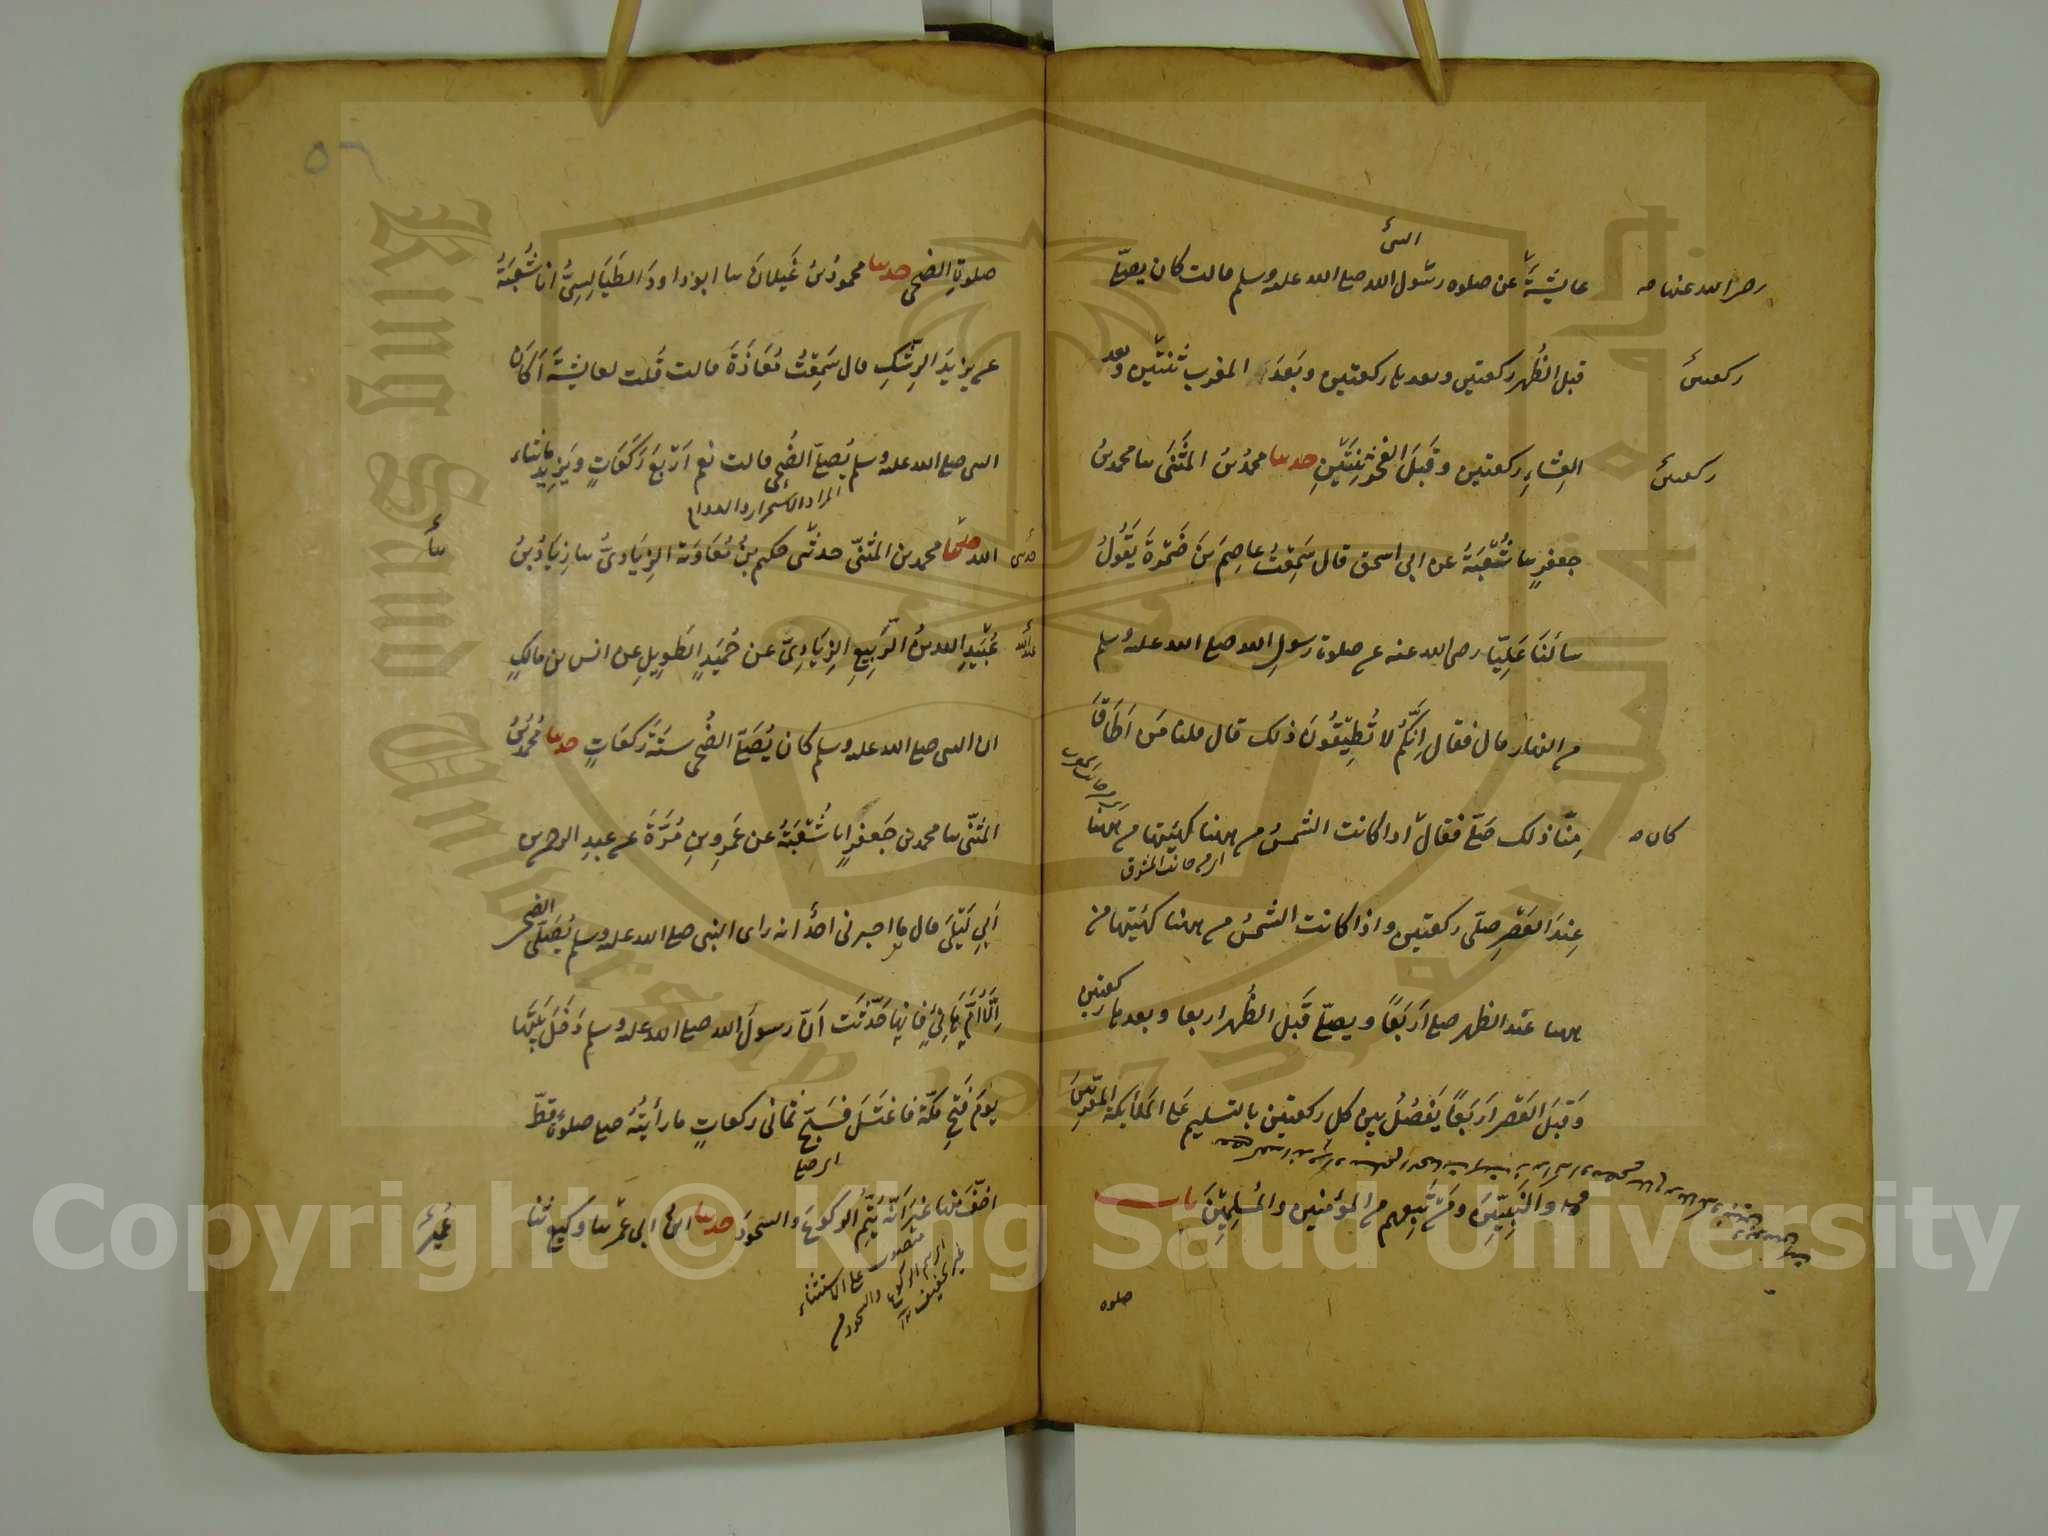 النبى
عايشة عن صلوة رسول الله صلى الله عليه وسلم قالت كان يصلى
رضى الله عنها صح
قبل الظهر ركعتين وبعدها ركعتين وبعد المغرب ثنتين وبعد
ركعتين
العشاء ركعتين وقبل الفجر ثنتين حدثنا محمد بن المثنى ثنا محمد بن
ركعتين
جعفر ثنا شعبة عن ابى اسحق قال سمعت عاصم بن ضمرة يقول
سألنا عليا رضى الله عنه عن صلوة رسول الله صلى الله عليه وسلم
من النهار قال فقال انكم لا تطيقون ذلك قال قلنا من اطاق
منا ذلك صلى فقال اذا كانت الشمس من ههنا كهيئتها من ههنا
كان
اى من جانب المشرق
عند العصر صلى ركعتين واذا كانت الشمس من ههنا كهيئتها من
ههنا عند الظهر صلى اربعا ويصلى قبل الظهر اربعا وبعدها ركعتين
وقبل العصر اربعا يفصل بين كل ركعتين بالتسليم على الملائكة المقربين
والنبيين ومن تبعهم من المؤمنين والمسلمين باب
صلوة
٥٦
صلوة الضحى حدثنا محمود بن غيلان ثنا ابو داود الطيالسى انا شعبة
عن يزيد الرشك قال سمعت معاذة قالت قلت لعايشة أكان
النبى صلى الله عليه وسلم يصلى الضحى قالت نعم اربع ركعات ويزيد ما شاء
المراد الاستمرار والدوام
الله حدثنا محمد بن المثنى حدثنى حكيم بن معاوية الزيادى ثنا زياد بن
حدثنى
ثنا
عبيد الله بن الربيع الزيادى عن حميد الطويل عن انس بن مالك
عبد الله
ان النبى صلى الله عليه وسلم كان يصلى الضحى ستة ركعات حدثنا محمد بن
المثنى ثنا محمد بن جعفر انا شعبة عن عمرو بن مرة عن عبد الرحمن
ابى ليلى قال ما اخبرنى احد انه راى النبى صلى الله عليه وسلم يصلى الضحى
الا ام هانى فانها حدثت ان رسول الله صلى الله عليه وسلم دخل بيتها
يوم فتح مكة فاغتسل فسبح ثمانى ركعات ما رأيته صلى صلوة قط
اى صلى
اخف منها غير انه يتم الركوع والسجود حدثنا ابن ابى عمر ثنا وكيع ثنا
منصوب على الاستثناء